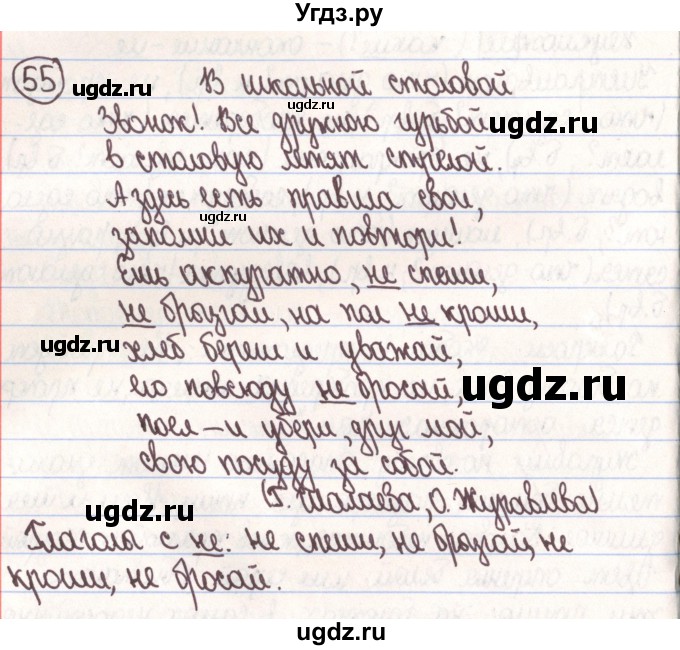 Угдз.ру
55 В школьной столовой
Звонок! Все дружною гурьбой
в столовую летят стрелой.
А здесь есть правила свои,
запомни их и повтори!
Ешь аккуратно, не спеши,
не брызгай, на пол не кроши,
хлеб береги и уважай,
его повсюду не бросай,
поел – и убери, друг мой,
свою посуду за собой.
(Г. Шалаева, О. Журавлева)
Глаголы с не: не спеши, не брызгай, не
кроши, не бросай.
ugdz.ru
ugdz.ru
ugdz.ru
ugdz.ru
ugdz.ru
ugdz.ru
ugdz.ru
ugdz.ru
ugdz.ru